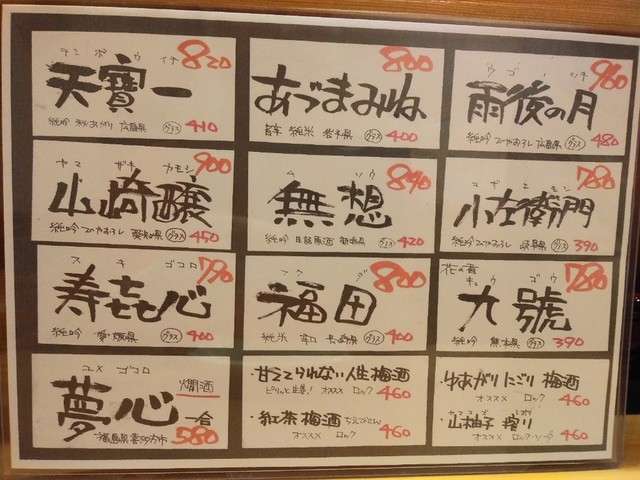 テンポウ イチ 820
天寶一
純吟 秋あがり 広島県 グラス 410
800
あづまみね
純米 岩手県 グラス 400
ウゴ ツキ 960
雨後の月
純吟 ひやおろし 広島県 グラス 480
ヤマ ザキ カモシ 900
山崎醸
純吟 ひやおろし 愛知県 グラス 450
ムソウ 840
無想
純吟 新潟県 グラス 420
コザエモン 780
小左衛門
純吟 ひやおろし 岐阜県 グラス 390
スキ ゴコロ 790
寿喜心
純吟 愛媛県 グラス 400
フクダ 800
福田
純米 辛口 長崎県 グラス 400
花の香 キュウ ゴウ 780
九號
純吟 熊本県 グラス 390
ユメ ゴコロ 燗酒
夢心 一合
福島県喜多方市 580
・甘えてられない人生梅酒
ピリッと生姜! オススメ ロック 460
・紅茶梅酒
オススメ ロック 460
・湯あがりにごり梅酒
オススメ ロック 460
・山柚子搾り
オススメ ロック・ソーダ 460